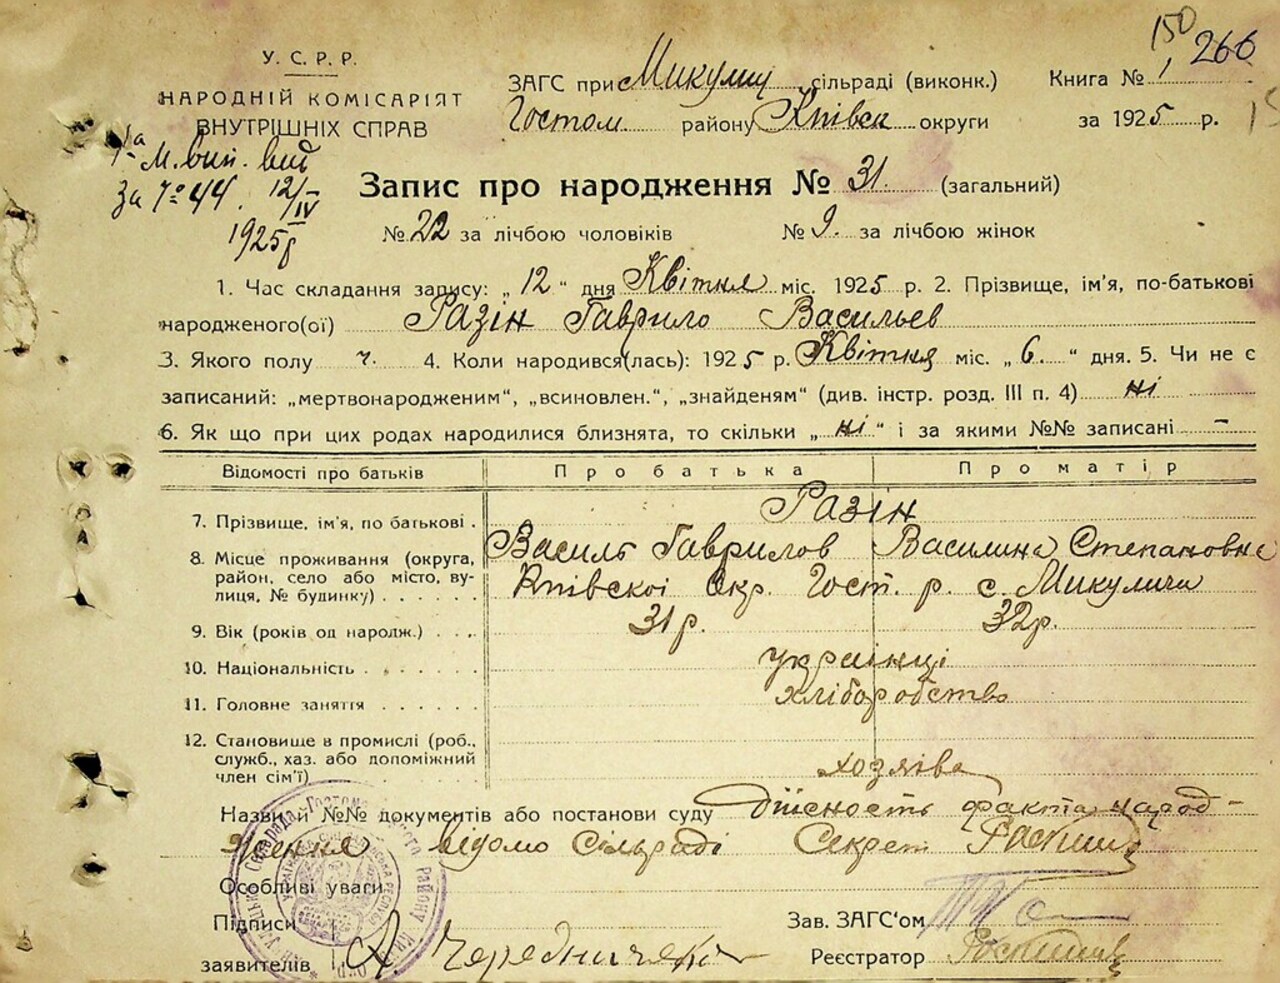 150
266
У. С. Р. Р.
НАРОДНІЙ КОМІСАРІЯТ
ВНУТРІШНІХ СПРАВ
ЗАГС при Микулиц сільраді (виконк.) Книга № 1
Гостом. району Київск округи за 1925 р.
М. вип. вид
За № 44. 12/IV
1925 р
Запис про народження № 31. (загальний)
№ 22 за лічбою чоловіків № 9. за лічбою жінок
1. Час складання запису: „12“ дня Квітня міс. 1925 р. 2. Прізвище, ім'я, по-батькові
народженого(ої) Разін Гаврило Васильев
3. Якого полу ч. 4. Коли народився(лась): 1925 р. Квітня міс. „6.“ дня. 5. Чи не є
записаний: „мертвонародженим“, „всиновлен.“, „знайденям“ (див. інстр. розд. III п. 4) ні
6. Як що при цих родах народилися близнята, то скільки „ні“ і за якими №№ записані –
Відомості про батьків Про батька Про матір
7. Прізвище, ім'я, по батькові . Разін
Василь Гаврилов Василина Степановна
8. Місце проживання (округа,
район, село або місто, ву-
лиця, № будинку) . . . . . . Київскої Окр. Гост. р. с. Микуличи
9. Вік (років од народж.) . . . 31 р. 32 р.
10. Національність . . . . . . українці
11. Головне заняття . . . . . . хліборобство
12. Становище в промислі (роб.,
служб., хаз. або допоміжний
член сім'ї) . . . . . . . . хозяїва
Назви й №№ документів або постанови суду Дійсность факта народ-
ження відомо Сільраді Секрет
Особливі уваги
Підписи
заявителів А Чередниченко
Зав. ЗАГС'ом
Реєстратор